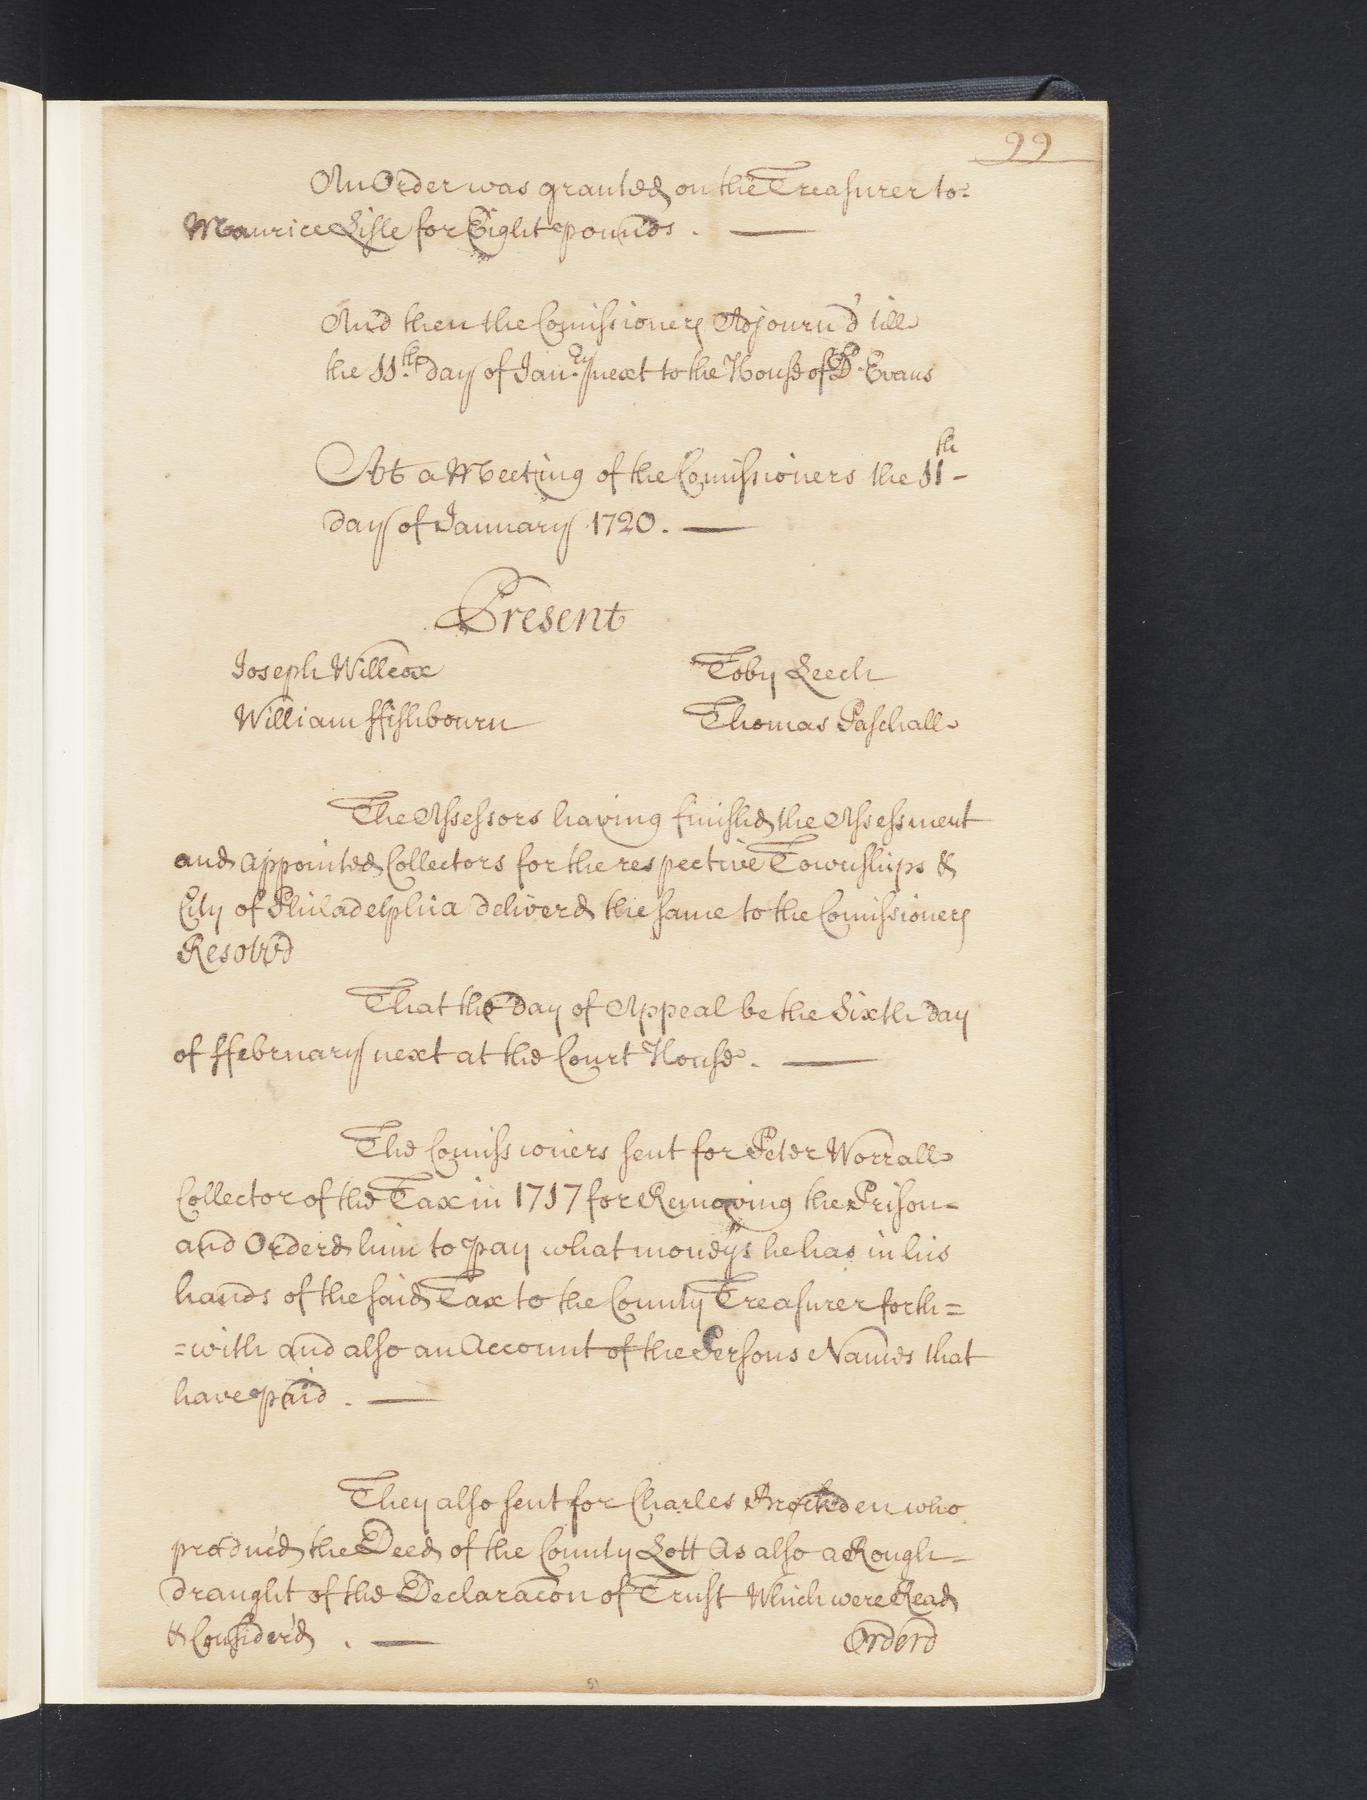 99
An Order was granted on the Treasurer to
Maurice Lisle for Eight pounds. —
And then the Comissioners Adjourn'd till
the 11th day of Janry next to the House of Dd Evans
At a Meeting of the Comissioners the 11th -
day of January 1720. —
Present
Joseph Willcox
Toby Leech
William ffishbourn
Thomas Paschall
The Assessors having finished the Assessment
and appointed Collectors for the respective Townships &
City of Philadelphia deliverd the same to the Comissioners
Resolv'd
That the day of Appeal be the Sixth day
of ffebruary next at the Court House. —
The Comissioners sent for Peter Worrall
Collector of the Tax in 1717 for Removing the Prison=
and Orderd him to pay what moneys he has in his
hands of the said Tax to the County Treasurer forth=
=with and also an Account of the Persons Names that
have paid. —
They also sent for Charles Brockden who
produc'd the Deed of the County Lott As also a Rough=
draught of the Declaracon of Trust Which were Read
& Consider'd. —
Orderd